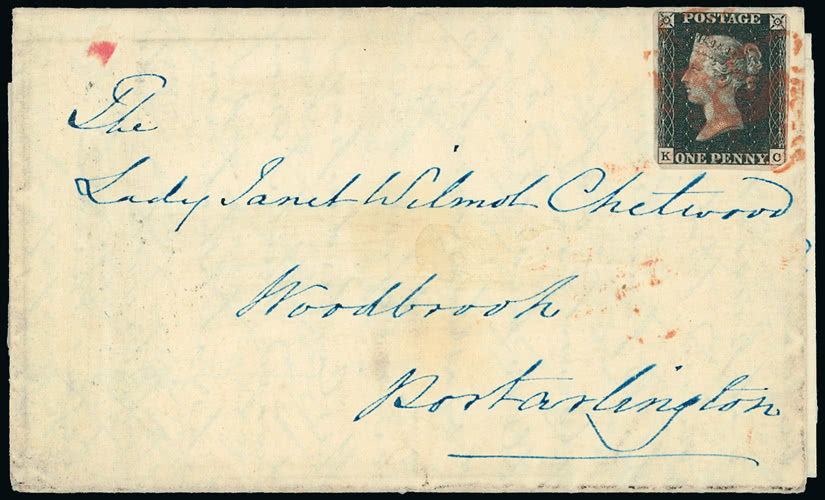 POSTAGE
K ONE PENNY C
The
Lady Janet Wilmot Chetwood
Woodbrook
Portarlington